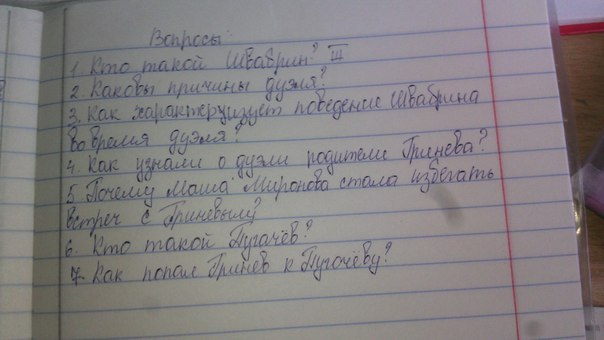 Вопросы:
1. Кто такой Швабрин? III
2. Каковы причины дуэля?
3. Как характеризует поведение Швабрина
во время дуэля?
4. Как узнали о дуэли родители Гринева?
5. Почему Маша Миронова стала избегать
встреч с Гриневым?
6. Кто такой Пугачёв?
7. Как попал Гринев к Пугочёву?